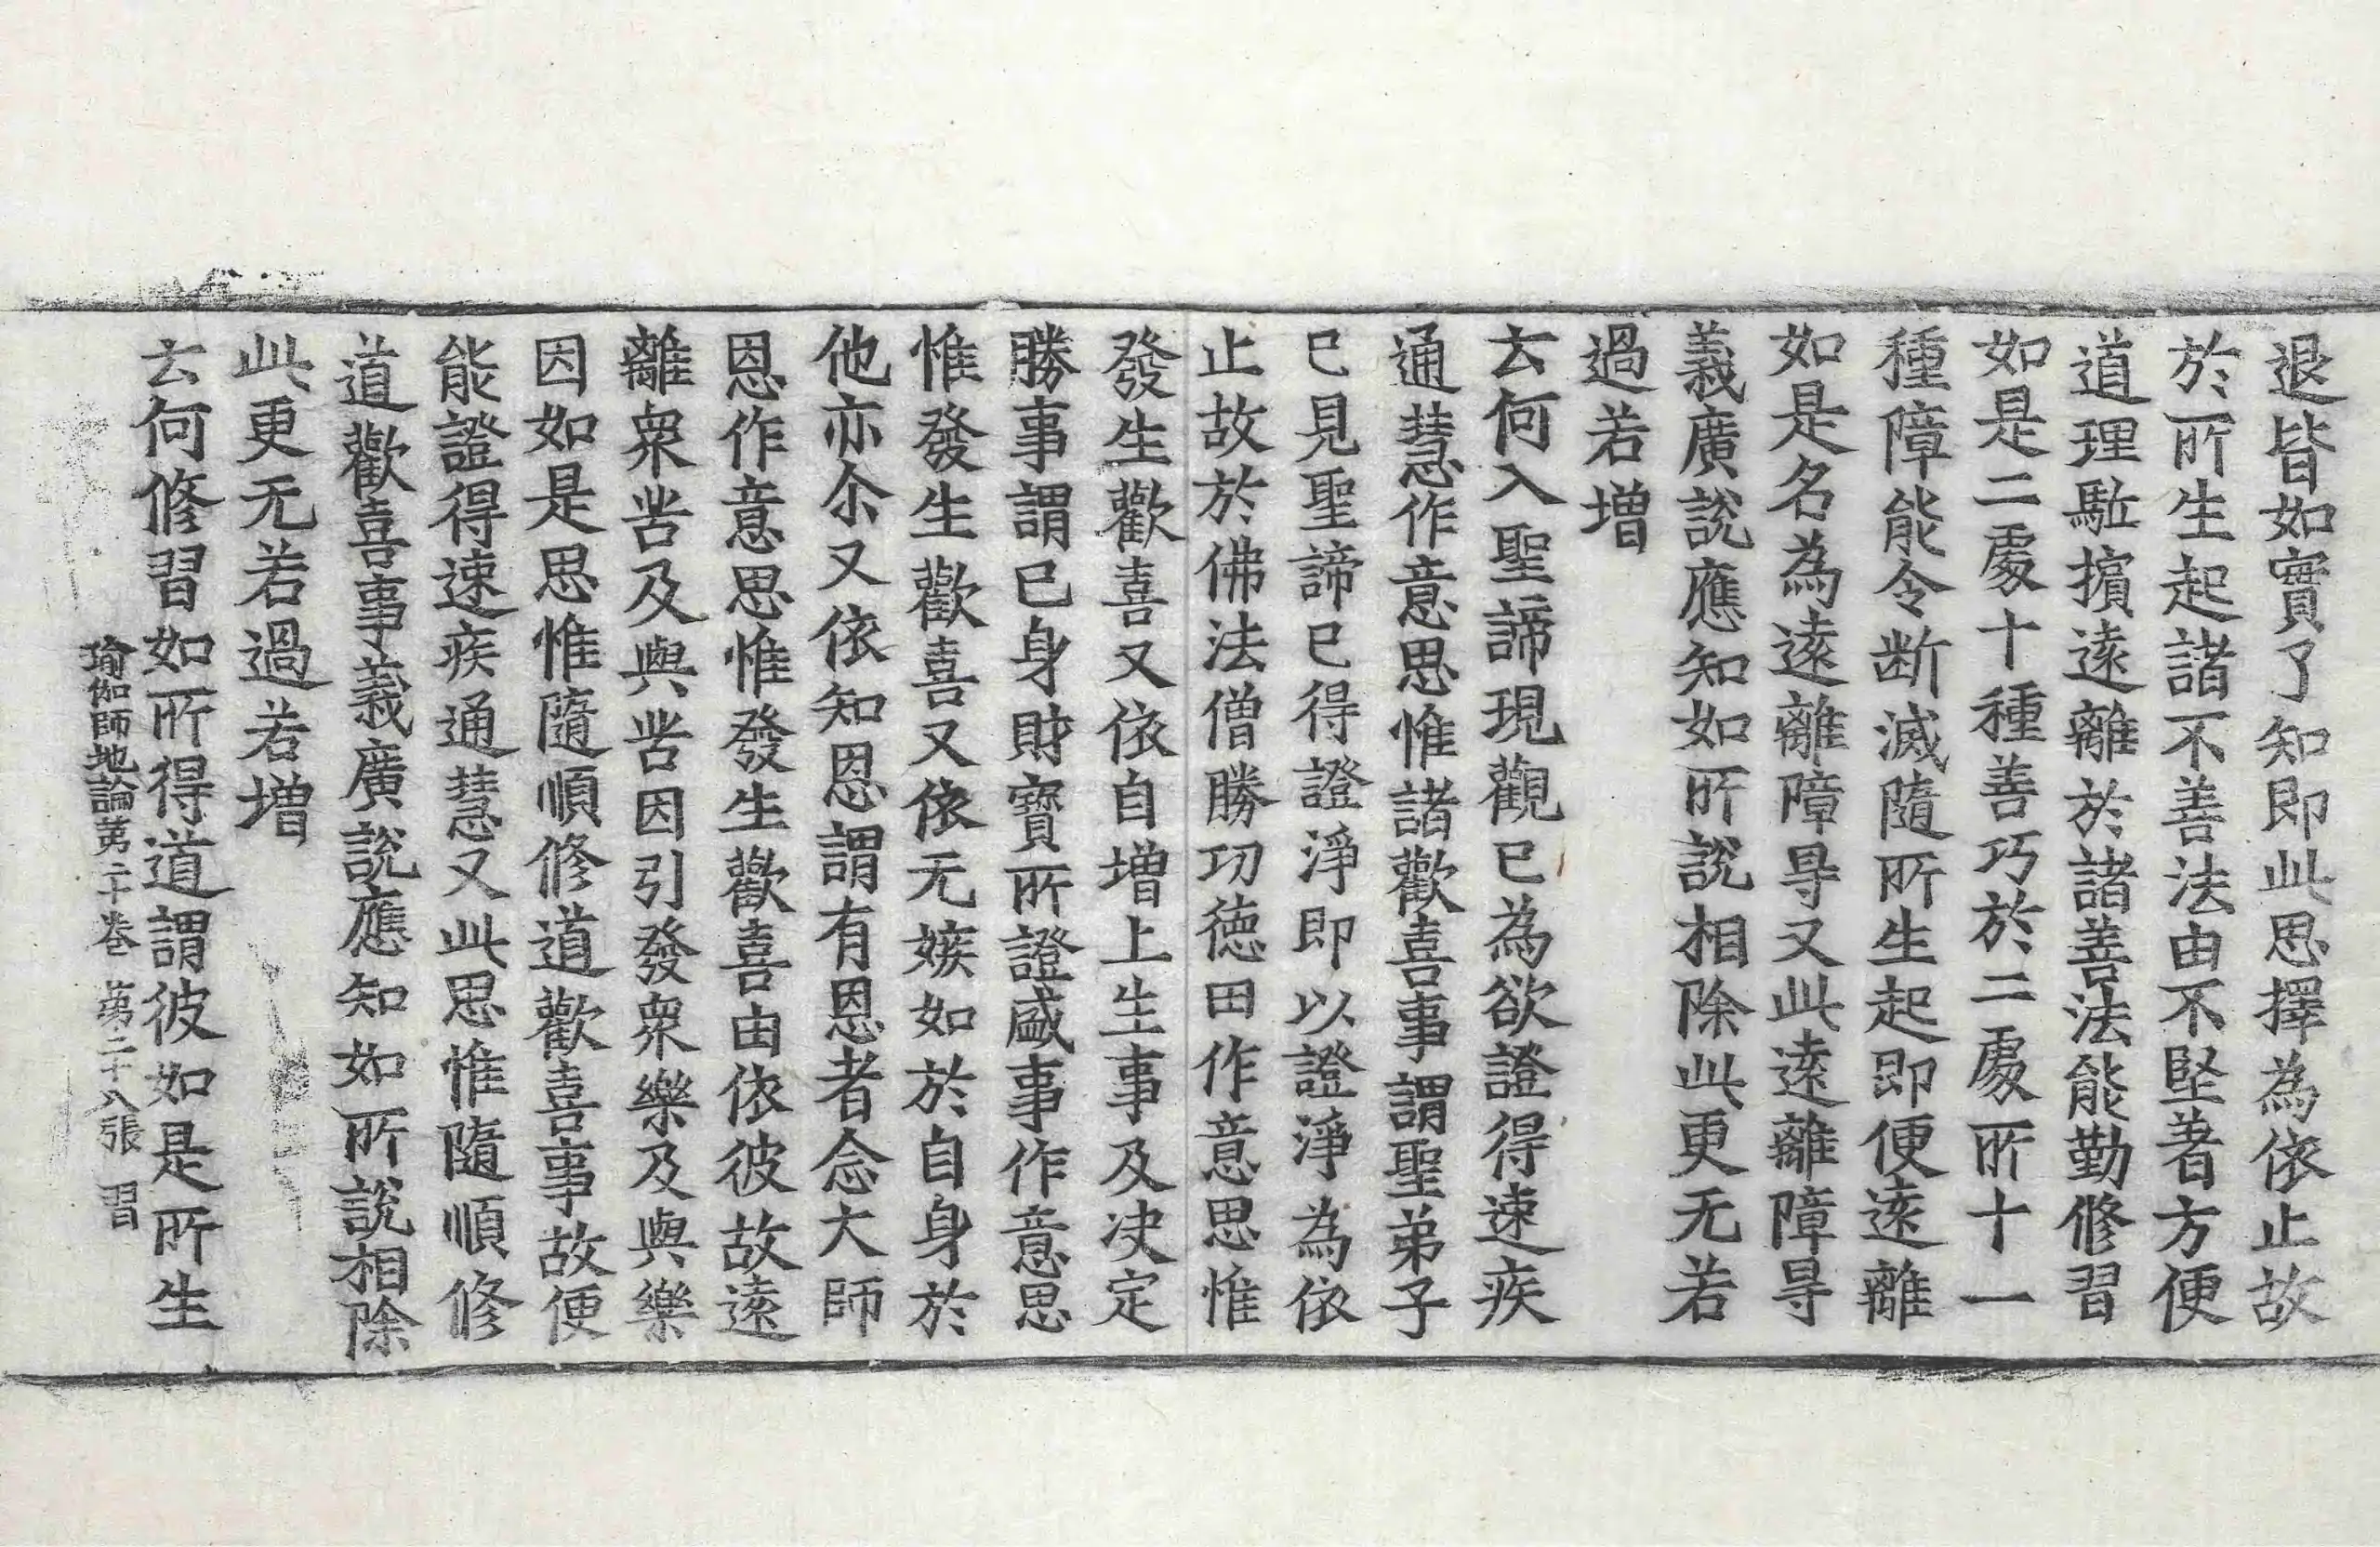 退皆如實了知即此思擇為依止故
於所生起諸不善法由不堅著方便
道理駈擯遠離於諸善法能勤修習
如是二處十種善巧於二處所十一
種障能令断滅隨所生起即便遠離
如是名為遠離障㝵又此遠離障㝵
義廣說應知如所說相除此更无若
過若增
云何入聖諦現觀已為欲證得速疾
通慧作意思惟諸歡喜事謂聖弟子
已見聖諦已得證淨即以證淨為依
止故於佛法僧勝功德田作意思惟
發生歡喜又依自增上生事及决定
勝事謂己身財寶所證盛事作意思
惟發生歡喜又依无嫉如於自身於
他亦尒又依知恩謂有恩者念大師
恩作意思惟發生歡喜由依彼故遠
離衆苦及與苦因引發衆樂及與樂
因如是思惟隨順修道歡喜事故便
能證得速疾通慧又此思惟隨順修
道歡喜事義廣說應知如所說相除
此更无若過若增
云何修習如所得道謂彼如是所生
瑜伽師地論第二十卷 第二十八張 習